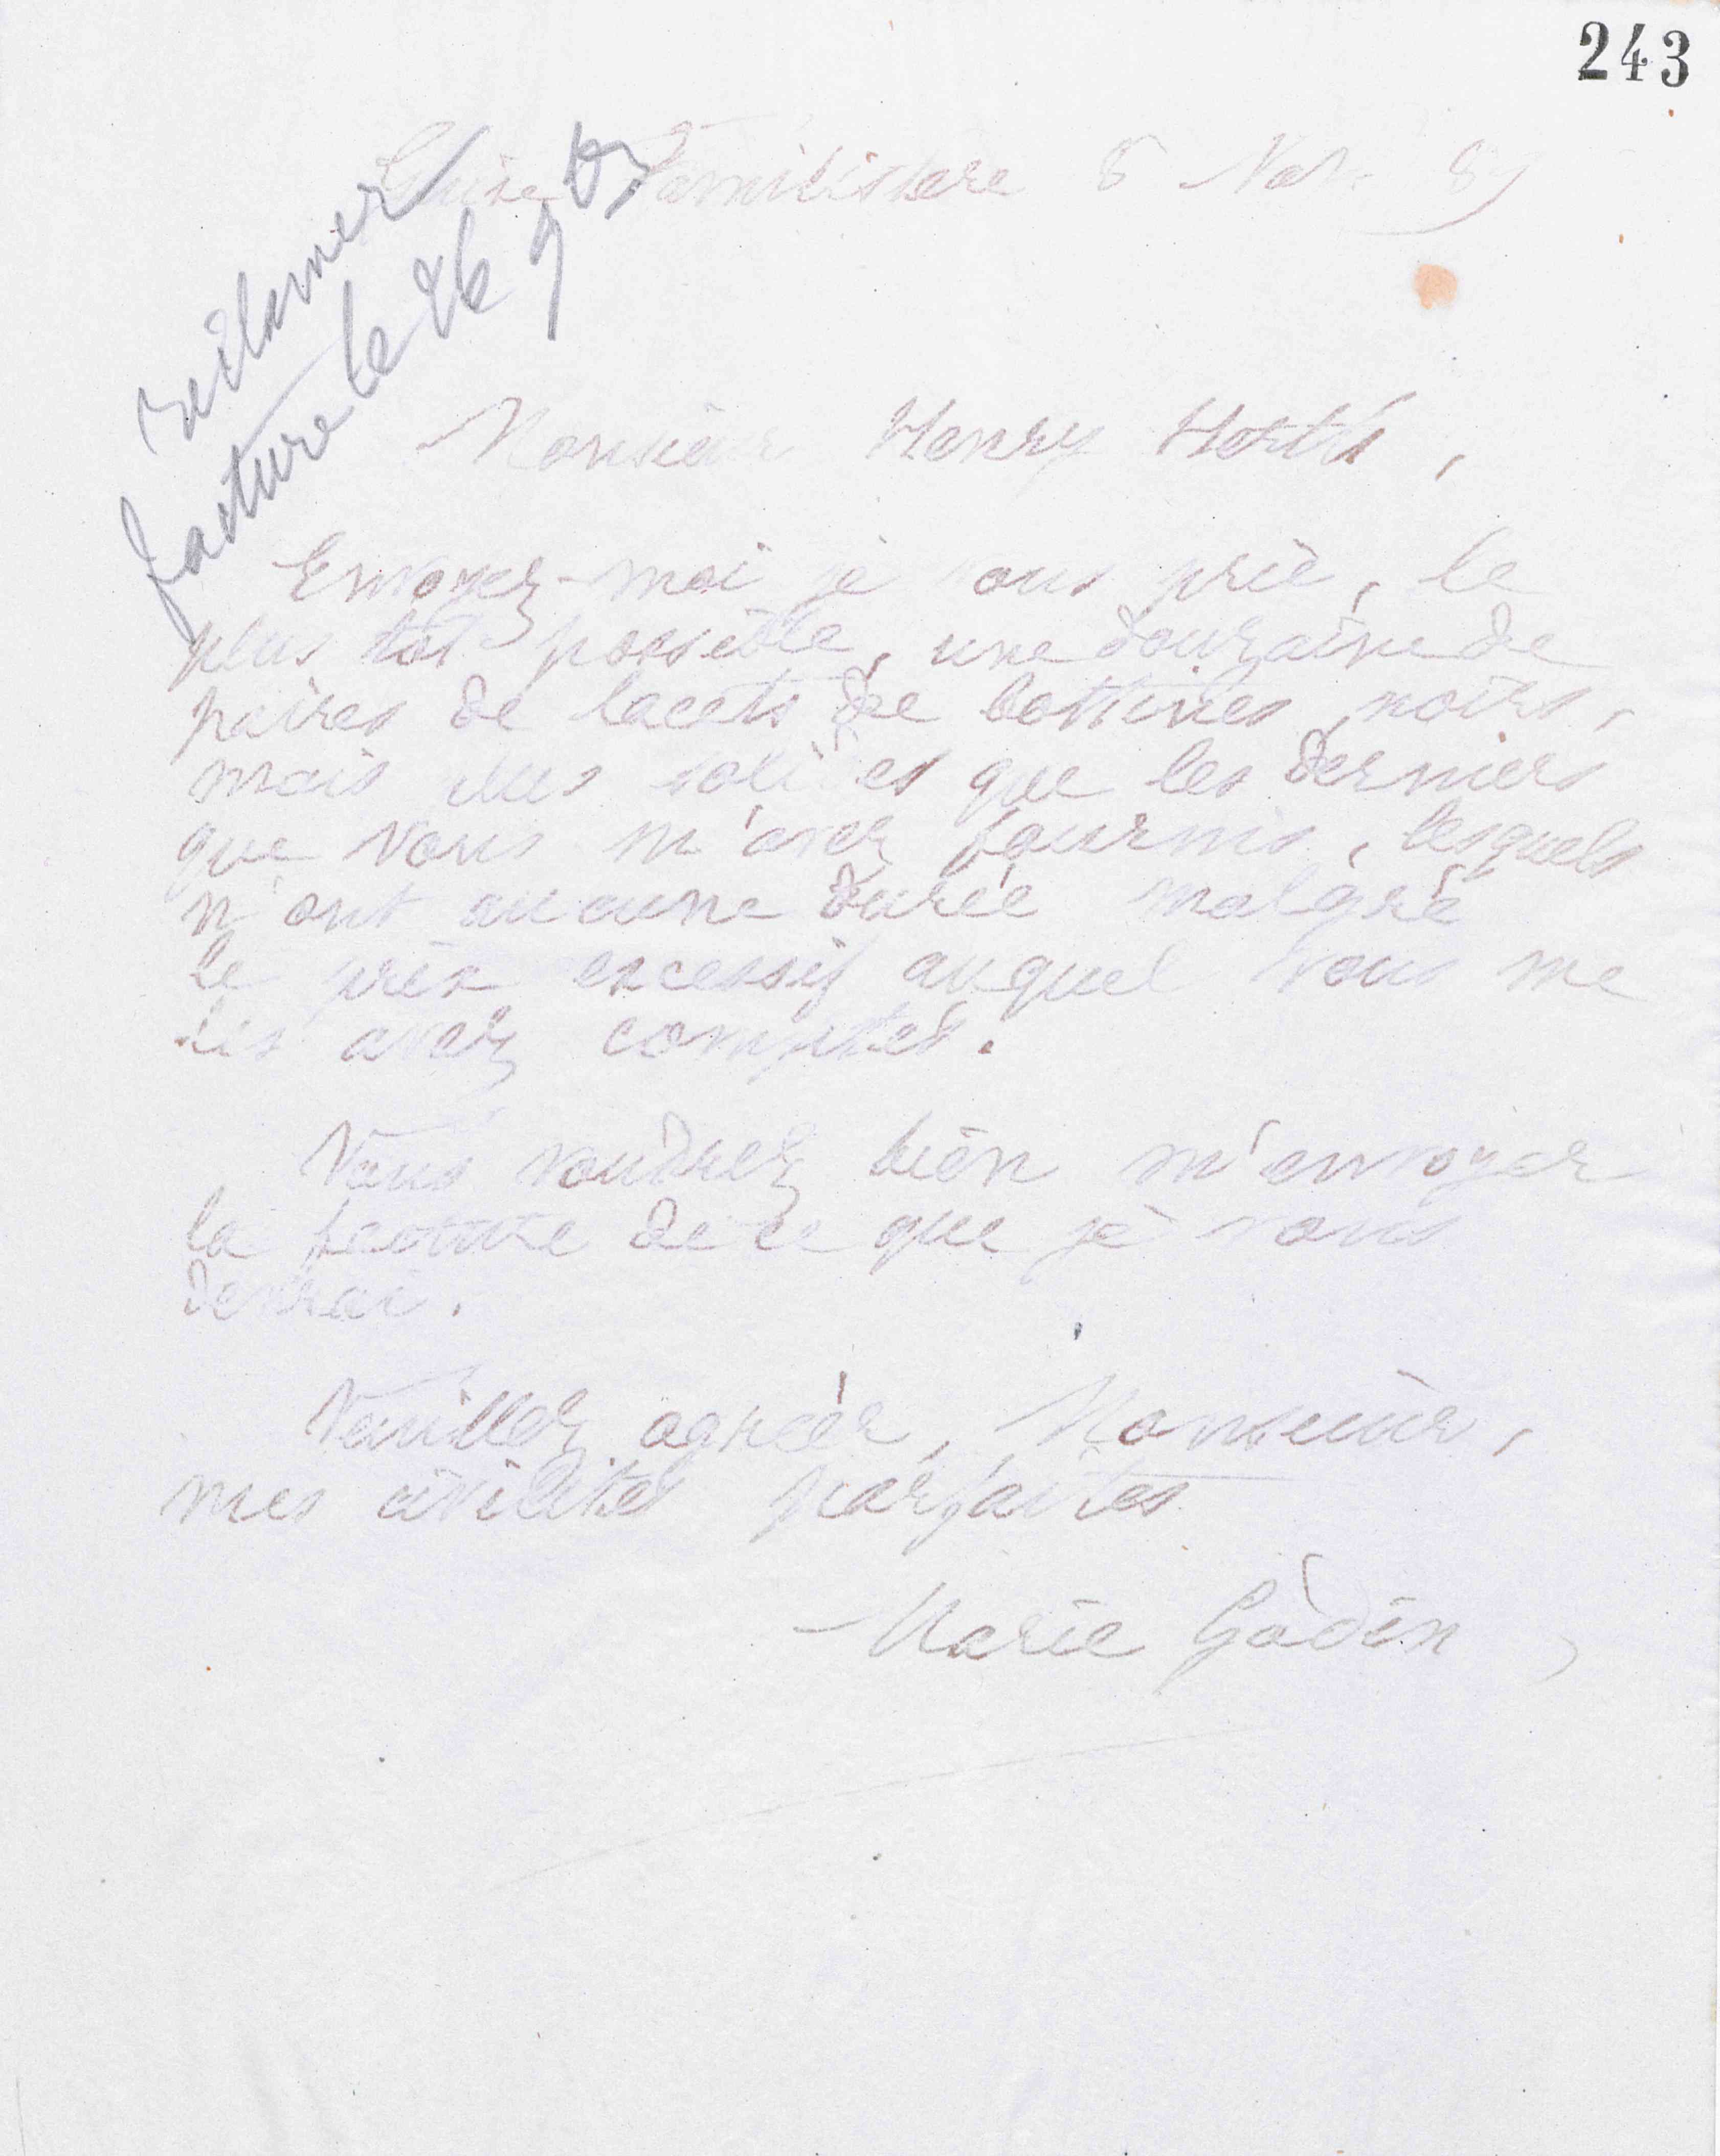 243
Guise Familistère 8 Nov. 89
réclamer
facture le 26 9bre
Monsieur Henry
Envoyez-moi je vous prie, le
plus tôt possible, une douzaine de
paires de lacets de bottines, noirs,
mais plus solides que les derniers
que vous m'avez fournis, lesquels
n'ont aucune durée malgré
le prix excessif auquel vous me
les avez comptés.
Vous voudrez bien m'envoyer
la facture de ce que je vous
devrai.
Veuillez agréer, Monsieur,
mes civilités parfaites
Marie Godin